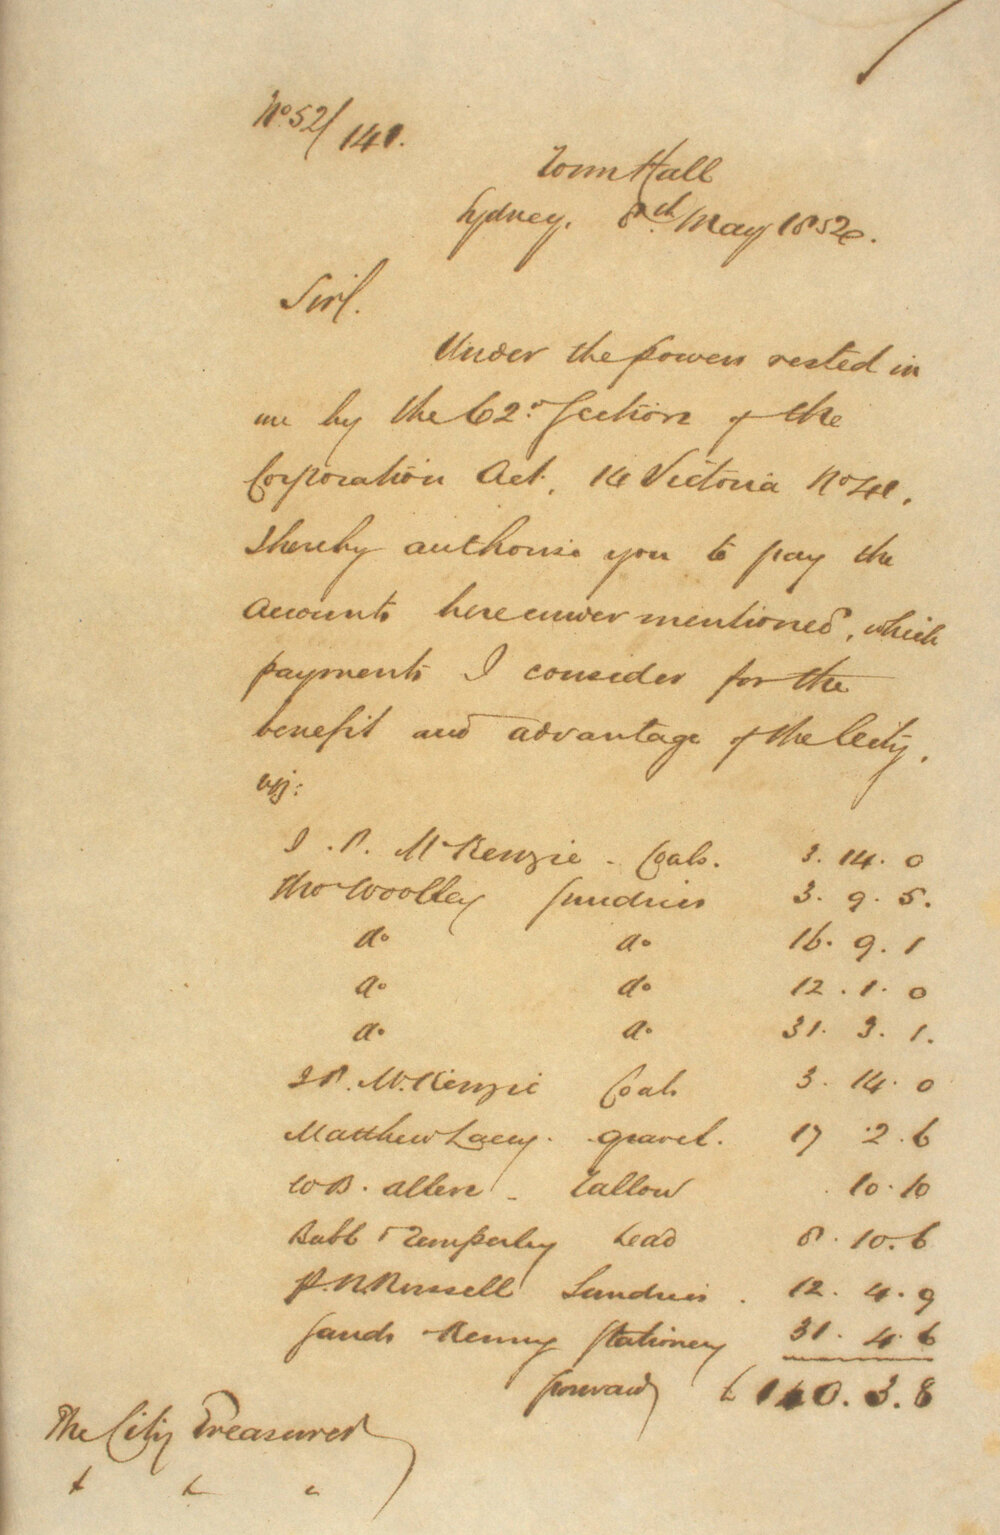 No. 52/141.
Town Hall
Sydney. 8th. May 1852.
Sir/.
Under the powers vested in
me by the 62d. Section of the
Corporation Act, 14 Victoria No 41,
I hereby authorise you to pay the
accounts hereunder mentioned, which
payments I consider for the
benefit and advantage of the City,
viz:
J. P. McKenzie - Coals. 3. 14. 0
Thos Woolley Sundries 3. 9. 5.
do do 16. 9. 1
do do 12. 1. 0
do do 31. 3. 1.
J P. McKenzie Coals 3. 14. 0
Matthew Lacey. gravel. 17 . 2. 6
W B. Allen - Tallow . 10. 10
Bubb & Temperley Lead 8. 10. 6
P. N. Russell Sundries . 12. 4. 9
Sands & Kenny Stationery 31. 4. 6
forward £ 140. 3. 8
The City Treasurer